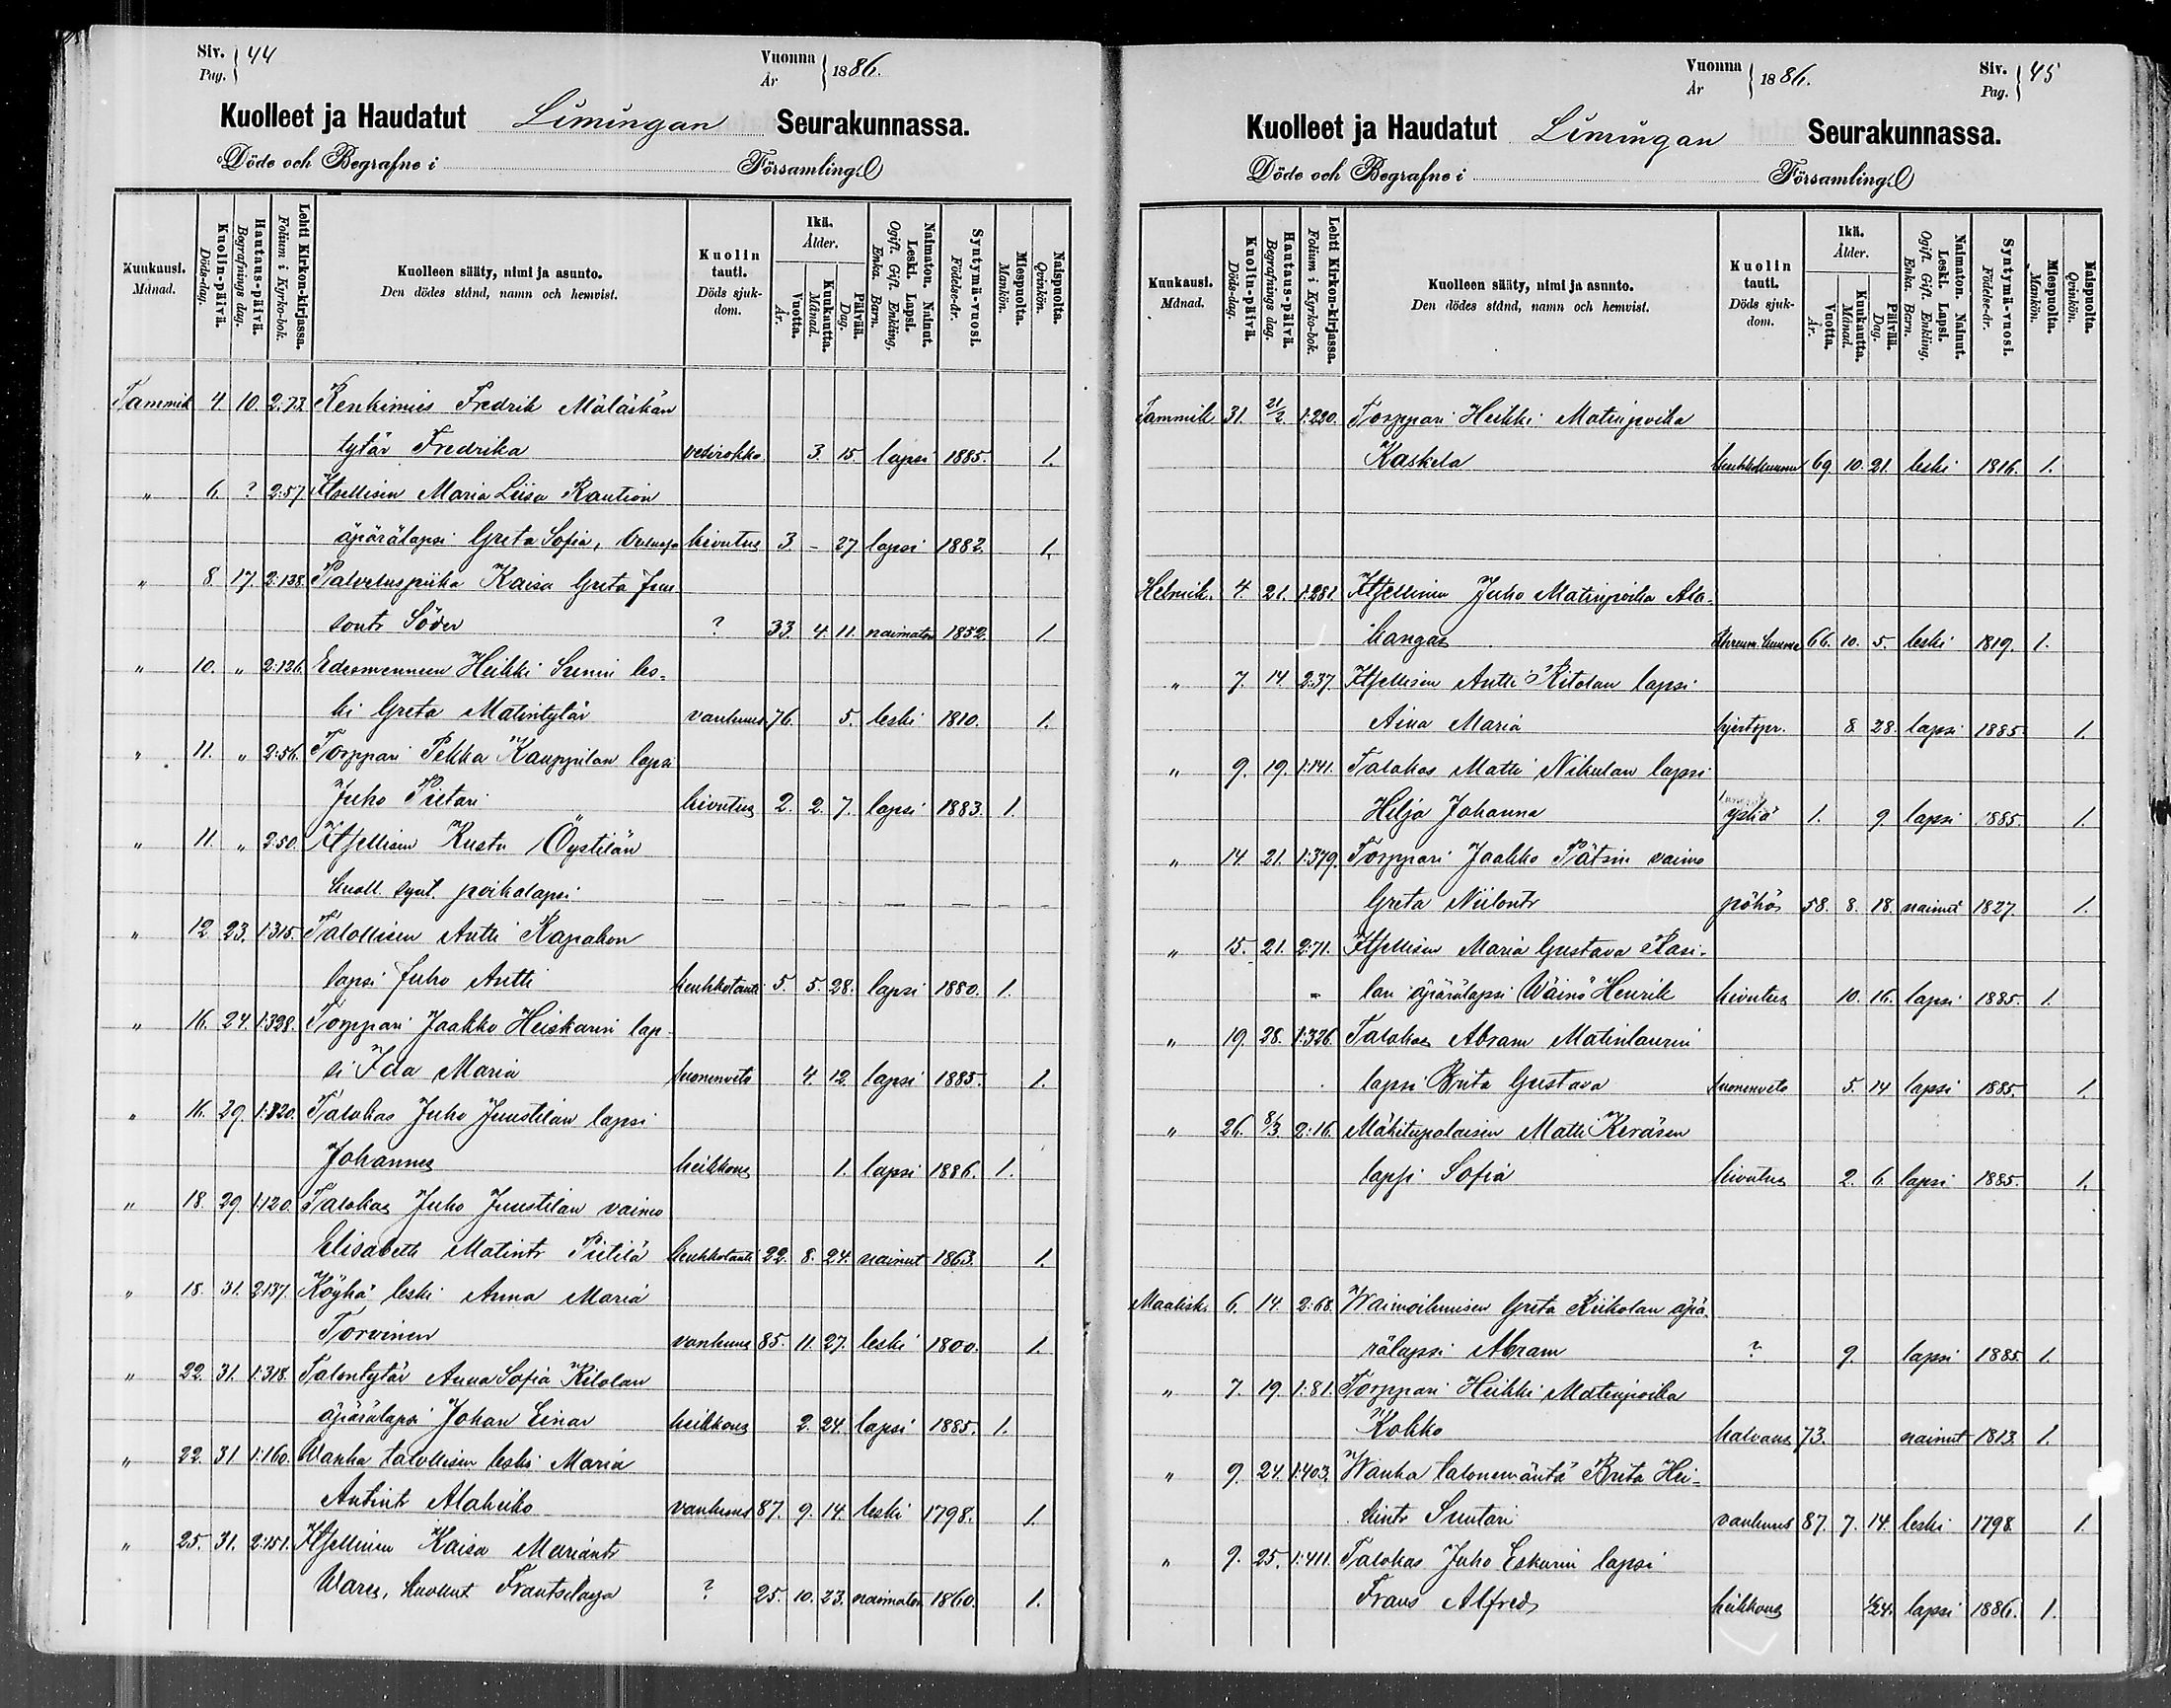 Siv. Pag. 44
Vuonna År 1886.
Kuolleet ja Haudatut Limingan Seurakunnassa.
Döde och Begrafne i Församling.
Kuukausi. Månad.
Kuolin-päivä. Döds-dag.
Hautaus-päivä. Begrafnings dag.
Lehti Kirkon-kirjassa. Folium i Kyrko-bok.
Kuolleen sääty, nimi ja asunto.
Den dödes stånd, namn och hemvist.
Kuolin tauti. Döds sjuk-dom.
Ikä. Ålder.
Vuotta. År.
Kuukautta. Månad.
Päivää. Dag.
Naimaton. Nainut. Leski. Lapsi. Ogift. Gift. Enkling, Enka. Barn.
Syntymä-vuosi. Födelse-år.
Miespuolta. Mankön.
Naispuolta. Qvinkön.
Tammik 4 10. 2:73. Renkimies Fredrik Mäläskän
tytär Fredrika vesirokko 3. 15. lapsi 1885. 1.
" 6. ? 2:57 Itsellisen Maria Liisa Raution
äpärälapsi Greta Sofia, kivutus 3. - 27 lapsi 1882. 1.
" 8. 17. 2:138. Palveluspiika Kaisa Greta Juu
sontr Söder ? 33. 4. 11. naimaton 1852. 1
" 10. " 2:126. Edesmenneen Heikki Sunin les-
ki Greta Matintytär vanhuus 76. 5. leski 1810. 1.
" 11. " 2:56. Torppari Pekka Kauppilan lapsi
Juho Pietari kivutus 2. 2. 7. lapsi 1883. 1.
" 11. " 2:50. Itsellisen Kustu Öystilän
kuoll. synt. poikalapsi — — — — — — — —
" 12 23. 1:315. Talollisen Antti Rapakon
lapsi Juho Antti keuhkotauti 5. 5. 28. lapsi 1880. 1.
" 16. 24. 1:328. Torppari Jaakko Heiskarin lap-
si Ida Maria suonenveto 4. 12. lapsi 1885. 1.
" 16. 29. 1:120. Talokas Juho Juustilan lapsi
Johannes heikkous 1. lapsi 1886. 1.
" 18. 29. 1:120. Talokas Juho Juustilan vaimo
Elisabeth Matintr Pietilä keuhkotauti 22. 8. 24. nainut 1863. 1.
" 18. 31. 2:137. Köyhä leski Anna Maria
Torvinen vanhuus 85. 11. 27. leski 1800. 1.
" 22. 31. 1:318. Talontytär Anna Sofia Kilolan
äpärälapsi Johan Einar heikkous 2. 24. lapsi 1885. 1.
" 22. 31 1:160. Wanha talollisen leski Maria
Antintr Alaheiko vanhuus 87. 9. 14. leski 1798. 1.
" 25. 31. 2:151. Itsellinen Kaisa Mariantr
Wares, kuollut Frantsilassa ? 25. 10. 23. naimaton 1860. 1.
Vuonna År 1886.
Siv. Pag. 45
Kuolleet ja Haudatut Limingan Seurakunnassa.
Döde och Begrafne i Församling.
Kuukausi. Månad.
Kuolin-päivä. Döds-dag.
Hautaus-päivä. Begrafnings dag.
Lehti Kirkon-kirjassa. Folium i Kyrko-bok.
Kuolleen sääty, nimi ja asunto.
Den dödes stånd, namn och hemvist.
Kuolin tauti. Döds sjuk-dom.
Ikä. Ålder.
Vuotta. År.
Kuukautta. Månad.
Päivää. Dag.
Naimaton. Nainut. Leski. Lapsi. Ogift. Gift. Enkling, Enka. Barn.
Syntymä-vuosi. Födelse-år.
Miespuolta. Mankön.
Naispuolta. Qvinkön.
Tammik 31. 21/2. 1:220. Torppari Heikki Matinpoika
Kaskela 69 10. 21. leski 1816. 1.
Helmik. 4. 21. 1:281. Itsellinen Juho Matinpoika Ala-
kangas 66. 10. 5. leski 1819. 1.
" 7. 14. 2:37. Itsellisen Antti Ritolan lapsi
Aina Maria 8. 28. lapsi 1885. 1.
" 9. 19. 1:141. Talokas Matti Nikulan lapsi
Helja Johanna yskä 1. 9. lapsi 1885. 1.
" 14. 21. 1:379. Torppari Jaakko Pätsin vaimo
Greta Niilontr pöhös 58. 8. 18. nainut 1827. 1.
" 15. 21. 2:71. Itsellisen Maria Gustava Rasi-
lan äpärälapsi Wäinö Henrik kivutus 10. 16. lapsi 1885. 1.
" 19. 28. 1:326. Talokas Abram Matinlaurin
lapsi Brita Gustava suonenveto 5. 14 lapsi 1885. 1.
" 26. 8/3. 2:16. Mäkitupalaisen Matti Keräsen
lapsi Sofia kivutus 2. 6. lapsi 1885. 1.
Maalisk. 6. 14. 2:68. Waimoihmisen Greta Riikolan äpä-
rälapsi Abram ? 9. lapsi 1885. 1.
" 7. 19. 1:81. Torppari Heikki Matinpoika
Kokko halvaus 73. nainut 1813. 1.
" 9. 24. 1:403. Wanha talonemäntä Brita Hei-
kintr Suutari vanhuus 87. 7. 14. leski 1798. 1.
" 9. 25. 1:411. Talokas Juho Eskurin lapsi
Frans Alfred heikkous 1/24. lapsi 1886. 1.